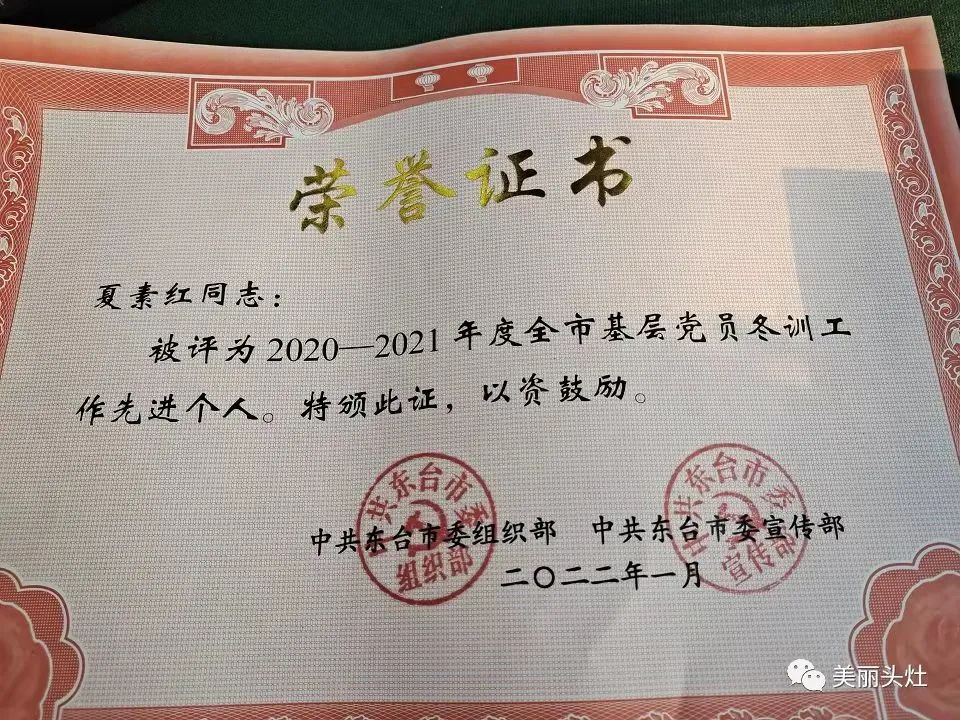 荣誉证书
夏素红同志：
被评为2020—2021年度全市基层党员冬训工
作先进个人。特颁此证，以资鼓励。
中共东台市委
组织部
中共东台市委
宣传部
中共东台市委组织部 中共东台市委宣传部
二〇二二年一月
美丽头灶